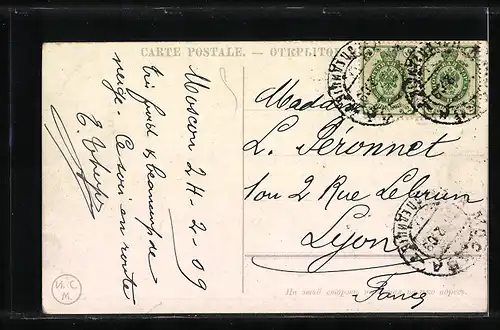 CARTE POSTALE. — ОТКРЫТО
Moscou 24-2-09
très froid & beaucoup de
neige. Ce soir en route
E.
Madame
L. Péronnet
1 ou 2 Rue Lebrun
Lyon
France
МОСКВА
2.09
И. С.
М.
На этой стороне
адресъ.